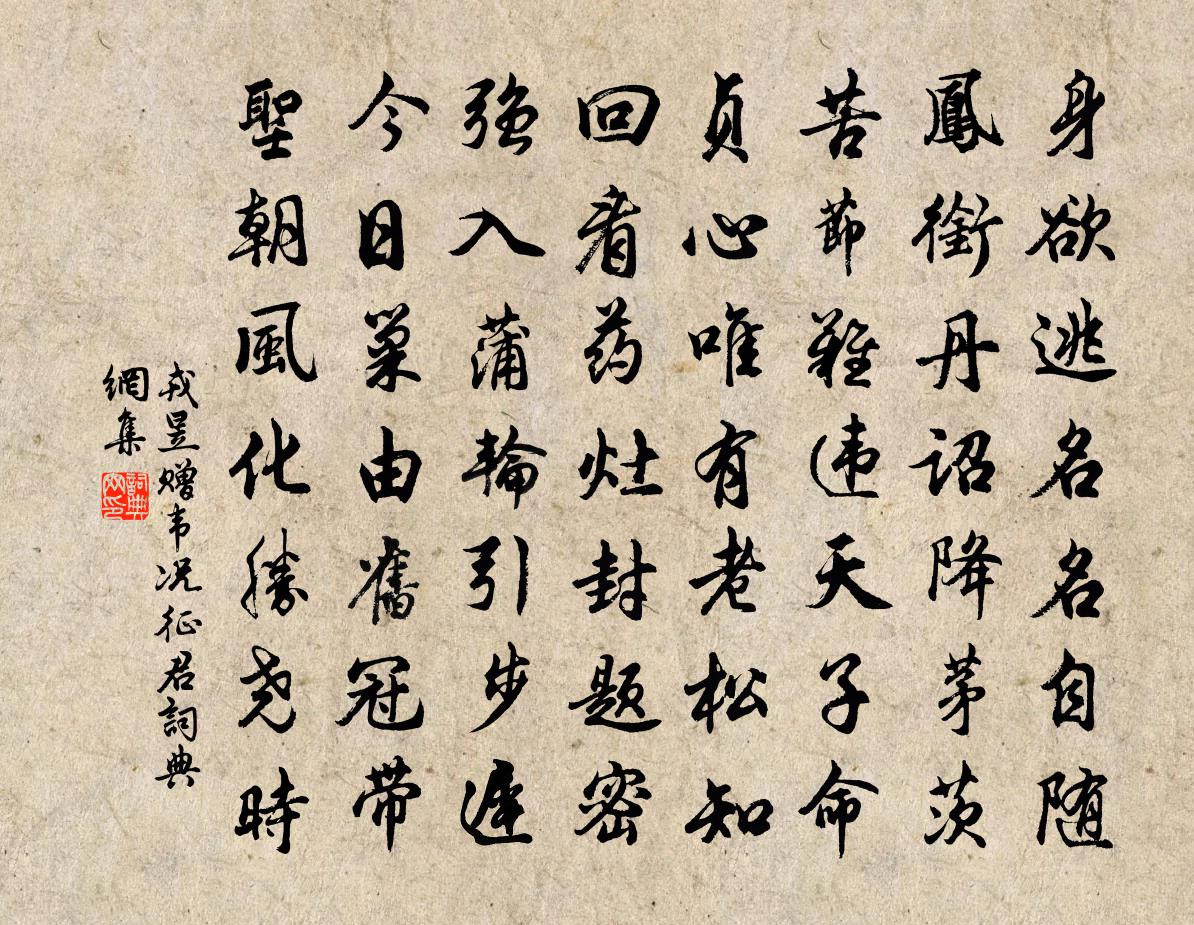 身欲逃名名自随
鳳銜丹詔降茅茨
苦節難违天子命
貞心唯有老松知
回看药灶封題密
强入蒲輪引步遲
今日巢由舊冠带
聖朝風化勝尧時
戎昱赠韦况征君詞典
網集
詞典